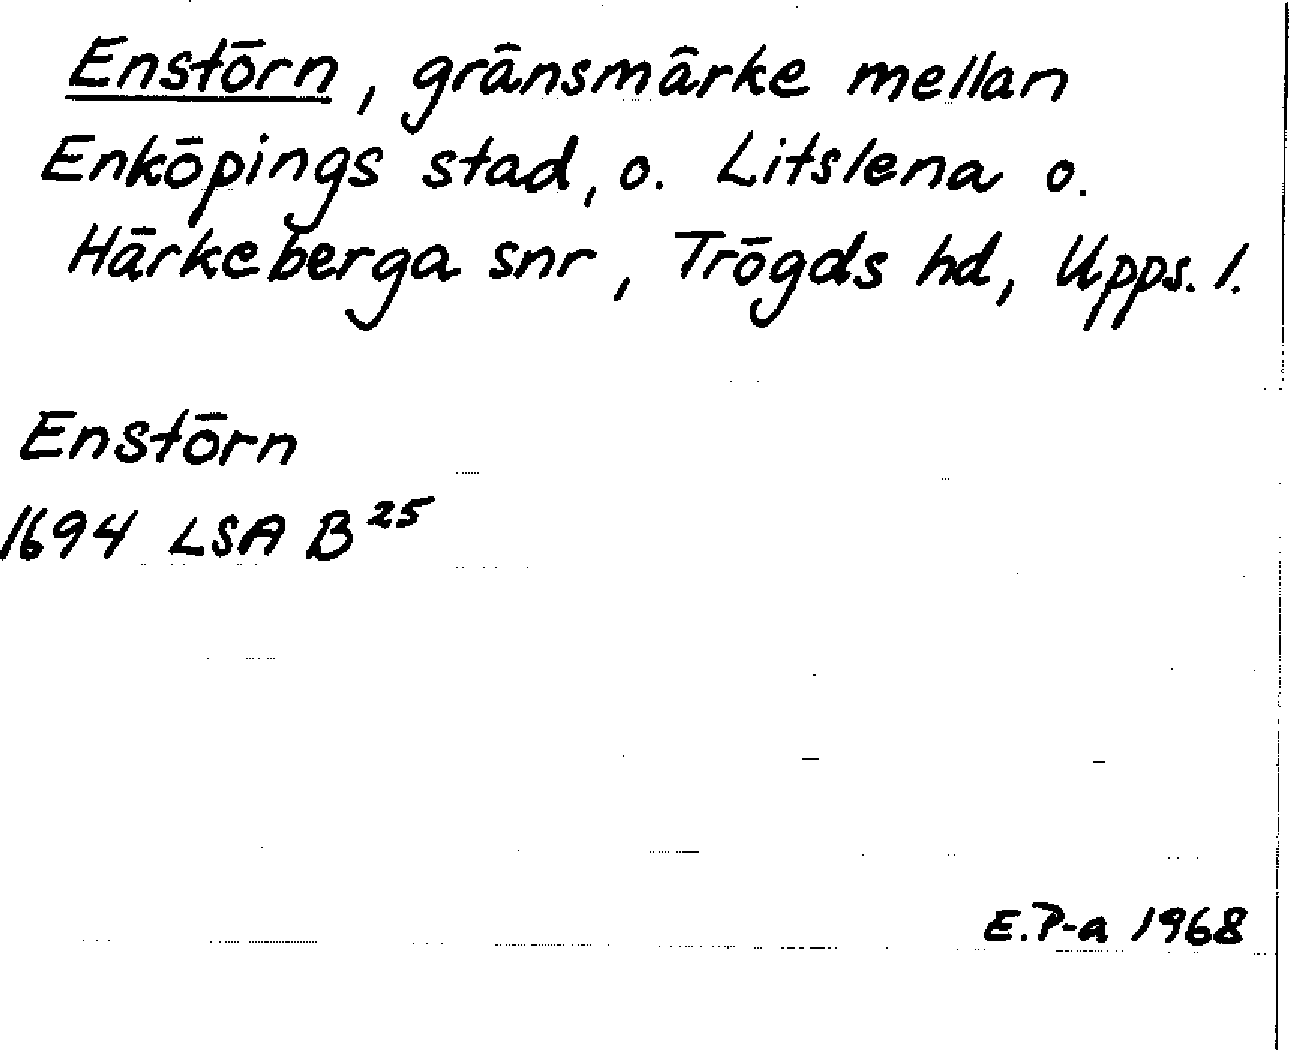 Enstörn, gränsmärke mellan
Enköpings stad, o. Litslena o.
Härkeberga snr, Trögds hd, Upps. l.
Enstörn
1694 LSA B²⁵
E.P-a 1968